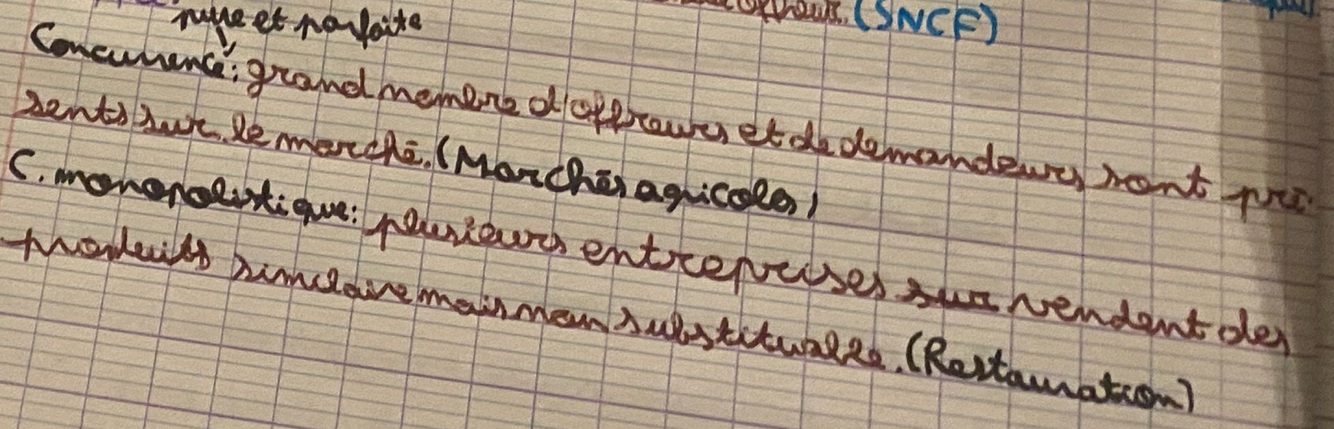 (SNCF)
pure et parfaite
Concurrence: grand nombre d'offreurs et de demandeurs sont pré-
sents sur le marché. (Marchés agricoles)
C. monopolistique: plusieurs entreprises sur vendent des
produits similaire mais non substituable. (Restauration)